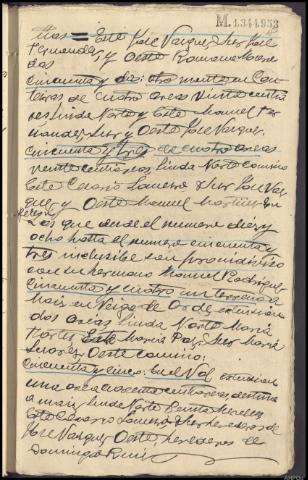 M.1344,953
más = Este José Vazquez, Sur José
Fernandez, y Oeste Romana
dos
cincuenta y dos: otro monte en Can
teiras de cuatro areas veinte centiá
reas linda Norte y Este Manuel Fer
nandez, Sur y Oeste José Vazquez.
cincuenta y tres de cuatro areas
veinte centiareas, linda Norte camino
Este Cesareo Sur José Vaz
quez y Oeste Manuel Martinez
Los que desde el numero diez y
ocho hasta el numero cincuenta y
tres inclusibe son proindiviso
con su hermano Manuel Rodriguez
cincuenta y cuatro un terreno a
Maiz en Veiga de extension
dos areas linda Norte Maria
Este Maria Paz, Sur Maria
Oeste camino.
cincuenta y cinco: En el Val extension
una area cincuenta centiareas, destina
a maiz, linda Norte
Este Cesareo Sur herederos de
José Vazquez Oeste, herederos de
Domingo Ruiz